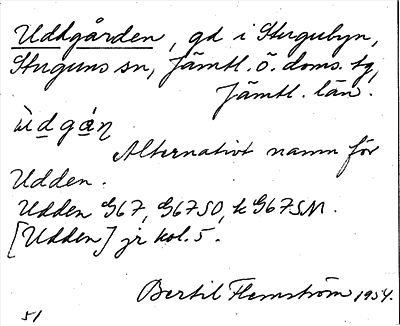 Uddgården, gd i Stugubyn,
Stuguns sn, Jämtl. ö. doms. tg,
Jämtl. län.
ùdgáṇ
Alternativt namn för
Udden.
Udden G67, G67SO, k G67SM.
[Udden] jr kol. 5.
Bertil Flemström 1954.
51